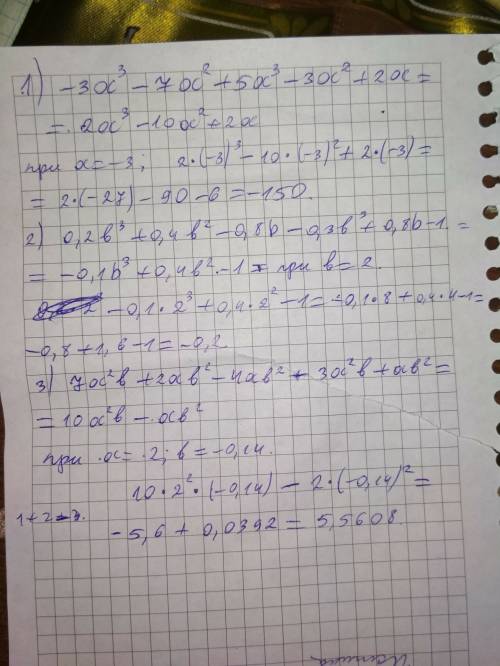 1) -3a³ - 7a² + 5a³ - 3a² + 2a =
= 2a³ - 10a² + 2a
при a = -3; 2·(-3)³ - 10·(-3)² + 2·(-3) =
= 2·(-27) - 90 - 6 = -150.
2) 0,2b³ + 0,4b² - 0,8b - 0,3b³ + 0,8b - 1 =
= -0,1b³ + 0,4b² - 1 при b = 2.
-0,1·2³ + 0,4·2² - 1 = -0,1·8 + 0,4·4 - 1 =
-0,8 + 1,6 - 1 = -0,2
3) 7a²b + 2ab² - 4ab² + 3a²b + ab² =
= 10a²b - ab²
при a = 2; b = -0,14.
10·2²·(-0,14) - 2·(-0,14)² =
1+2=3.
-5,6 + 0,0392 = 5,5608